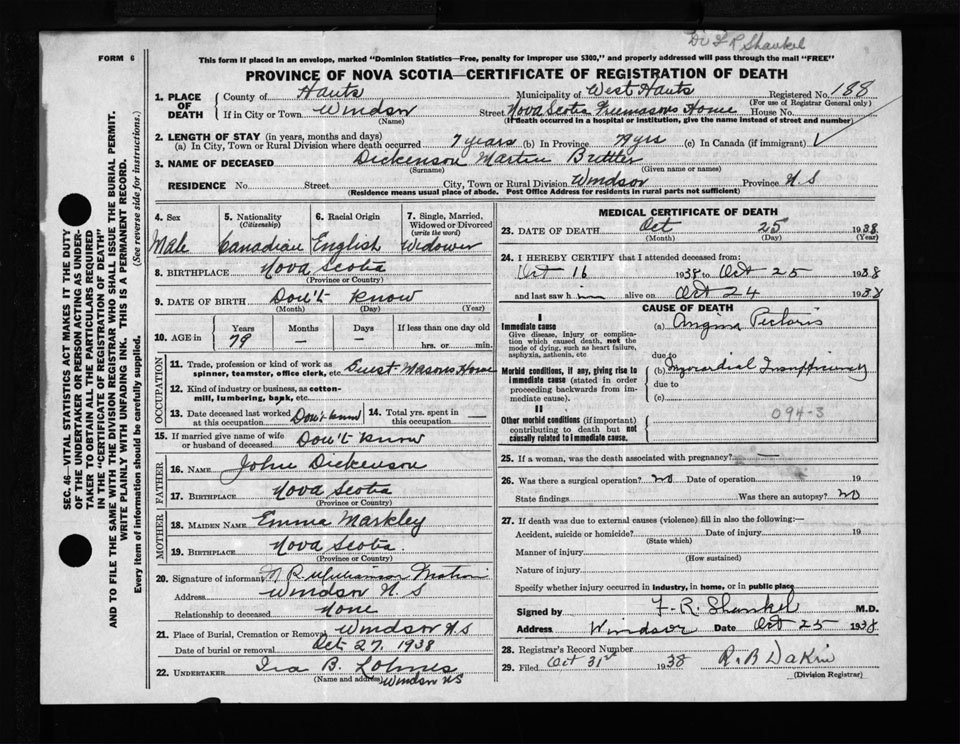 Dr F R Shankel
FORM 6
This form if placed in an envelope, marked "Dominion Statistics—Free, penalty for improper use $300," and properly addressed will pass through the mail "FREE"
PROVINCE OF NOVA SCOTIA—CERTIFICATE OF REGISTRATION OF DEATH
1. PLACE OF DEATH
County of Hants Municipality of West Hants Registered No. 188
(For use of Registrar General only)
If in City or Town Windsor Street Nova Scotia Freemasons Home House No.
(Name) (If death occurred in a hospital or institution, give the name instead of street and number)
2. LENGTH OF STAY (in years, months and days)
(a) In City, Town or Rural Division where death occurred 7 years (b) In Province 79 yrs (c) In Canada (if immigrant)
3. NAME OF DECEASED Dickenson Martin
(Surname) (Given name or names)
RESIDENCE No. Street City, Town or Rural Division Windsor Province N S
(Residence means usual place of abode. Post Office Address for residents in rural parts not sufficient)
SEC. 46—VITAL STATISTICS ACT MAKES IT THE DUTY
OF THE UNDERTAKER OR PERSON ACTING AS UNDER-
TAKER TO OBTAIN ALL THE PARTICULARS REQUIRED
IN THE "CERTIFICATE OF REGISTRATION OF DEATH"
AND TO FILE THE SAME WITH THE DIVISION REGISTRAR WHO SHALL ISSUE THE BURIAL PERMIT.
WRITE PLAINLY WITH UNFADING INK. THIS IS A PERMANENT RECORD.
Every item of information should be carefully supplied. (See reverse side for instructions.)
4. Sex Male
5. Nationality (Citizenship) Canadian
6. Racial Origin English
7. Single, Married, Widowed or Divorced (write the word) Widower
8. BIRTHPLACE Nova Scotia
(Province or Country)
9. DATE OF BIRTH Don't know
(Month) (Day) (Year)
10. AGE in Years 79 Months — Days — If less than one day old hrs. or min.
OCCUPATION
11. Trade, profession or kind of work as spinner, teamster, office clerk, etc. Guest Masons Home
12. Kind of industry or business, as cotton-mill, lumbering, bank, etc.
13. Date deceased last worked at this occupation Don't know 14. Total yrs. spent in this occupation —
15. If married give name of wife or husband of deceased Don't know
FATHER
16. NAME John Dickenson
17. BIRTHPLACE Nova Scotia
(Province or Country)
MOTHER
18. MAIDEN NAME Emma Markley
19. BIRTHPLACE Nova Scotia.
(Province or Country)
20. Signature of informant R. Williamson
Address Windsor N. S
Relationship to deceased None
21. Place of Burial, Cremation or Removal Windsor N.S
Date of burial or removal Oct 27, 1938
22. UNDERTAKER Ira B. Lohnes
(Name and address) Windsor NS
MEDICAL CERTIFICATE OF DEATH
23. DATE OF DEATH Oct 25 1938
(Month) (Day) (Year)
24. I HEREBY CERTIFY that I attended deceased from:
Oct 16 1938 to Oct 25 1938
and last saw him alive on Oct 24 1938
CAUSE OF DEATH
I
Immediate cause
Give disease, injury or complication which caused death, not the mode of dying, such as heart failure, asphyxia, asthenia, etc
(a) Angina Pectoris
due to
Morbid conditions, if any, giving rise to immediate cause (stated in order proceeding backwards from immediate cause).
(b) Myocardial Insufficiency
due to
(c)
094-3
II
Other morbid conditions (if important) contributing to death but not causally related to immediate cause.
25. If a woman, was the death associated with pregnancy? —
26. Was there a surgical operation? no Date of operation 19
State findings Was there an autopsy? no
27. If death was due to external causes (violence) fill in also the following:—
Accident, suicide or homicide? Date of injury 19
(State which)
Manner of injury
(How sustained)
Nature of injury
Specify whether injury occurred in industry, in home, or in public place
Signed by F. R. Shankel M.D.
Address Windsor Date Oct 25 1938
28. Registrar's Record Number
29. Filed Oct 31st 1938 R. B Dakin
(Division Registrar)